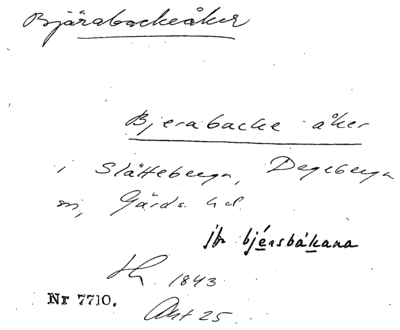 Bjärabackeåker
Bjerabacke åker
i Slätteberga, Degeberga
sn, Gärds hd.
jfr bjérsbákana
1843
Nr 7710.
Akt 25